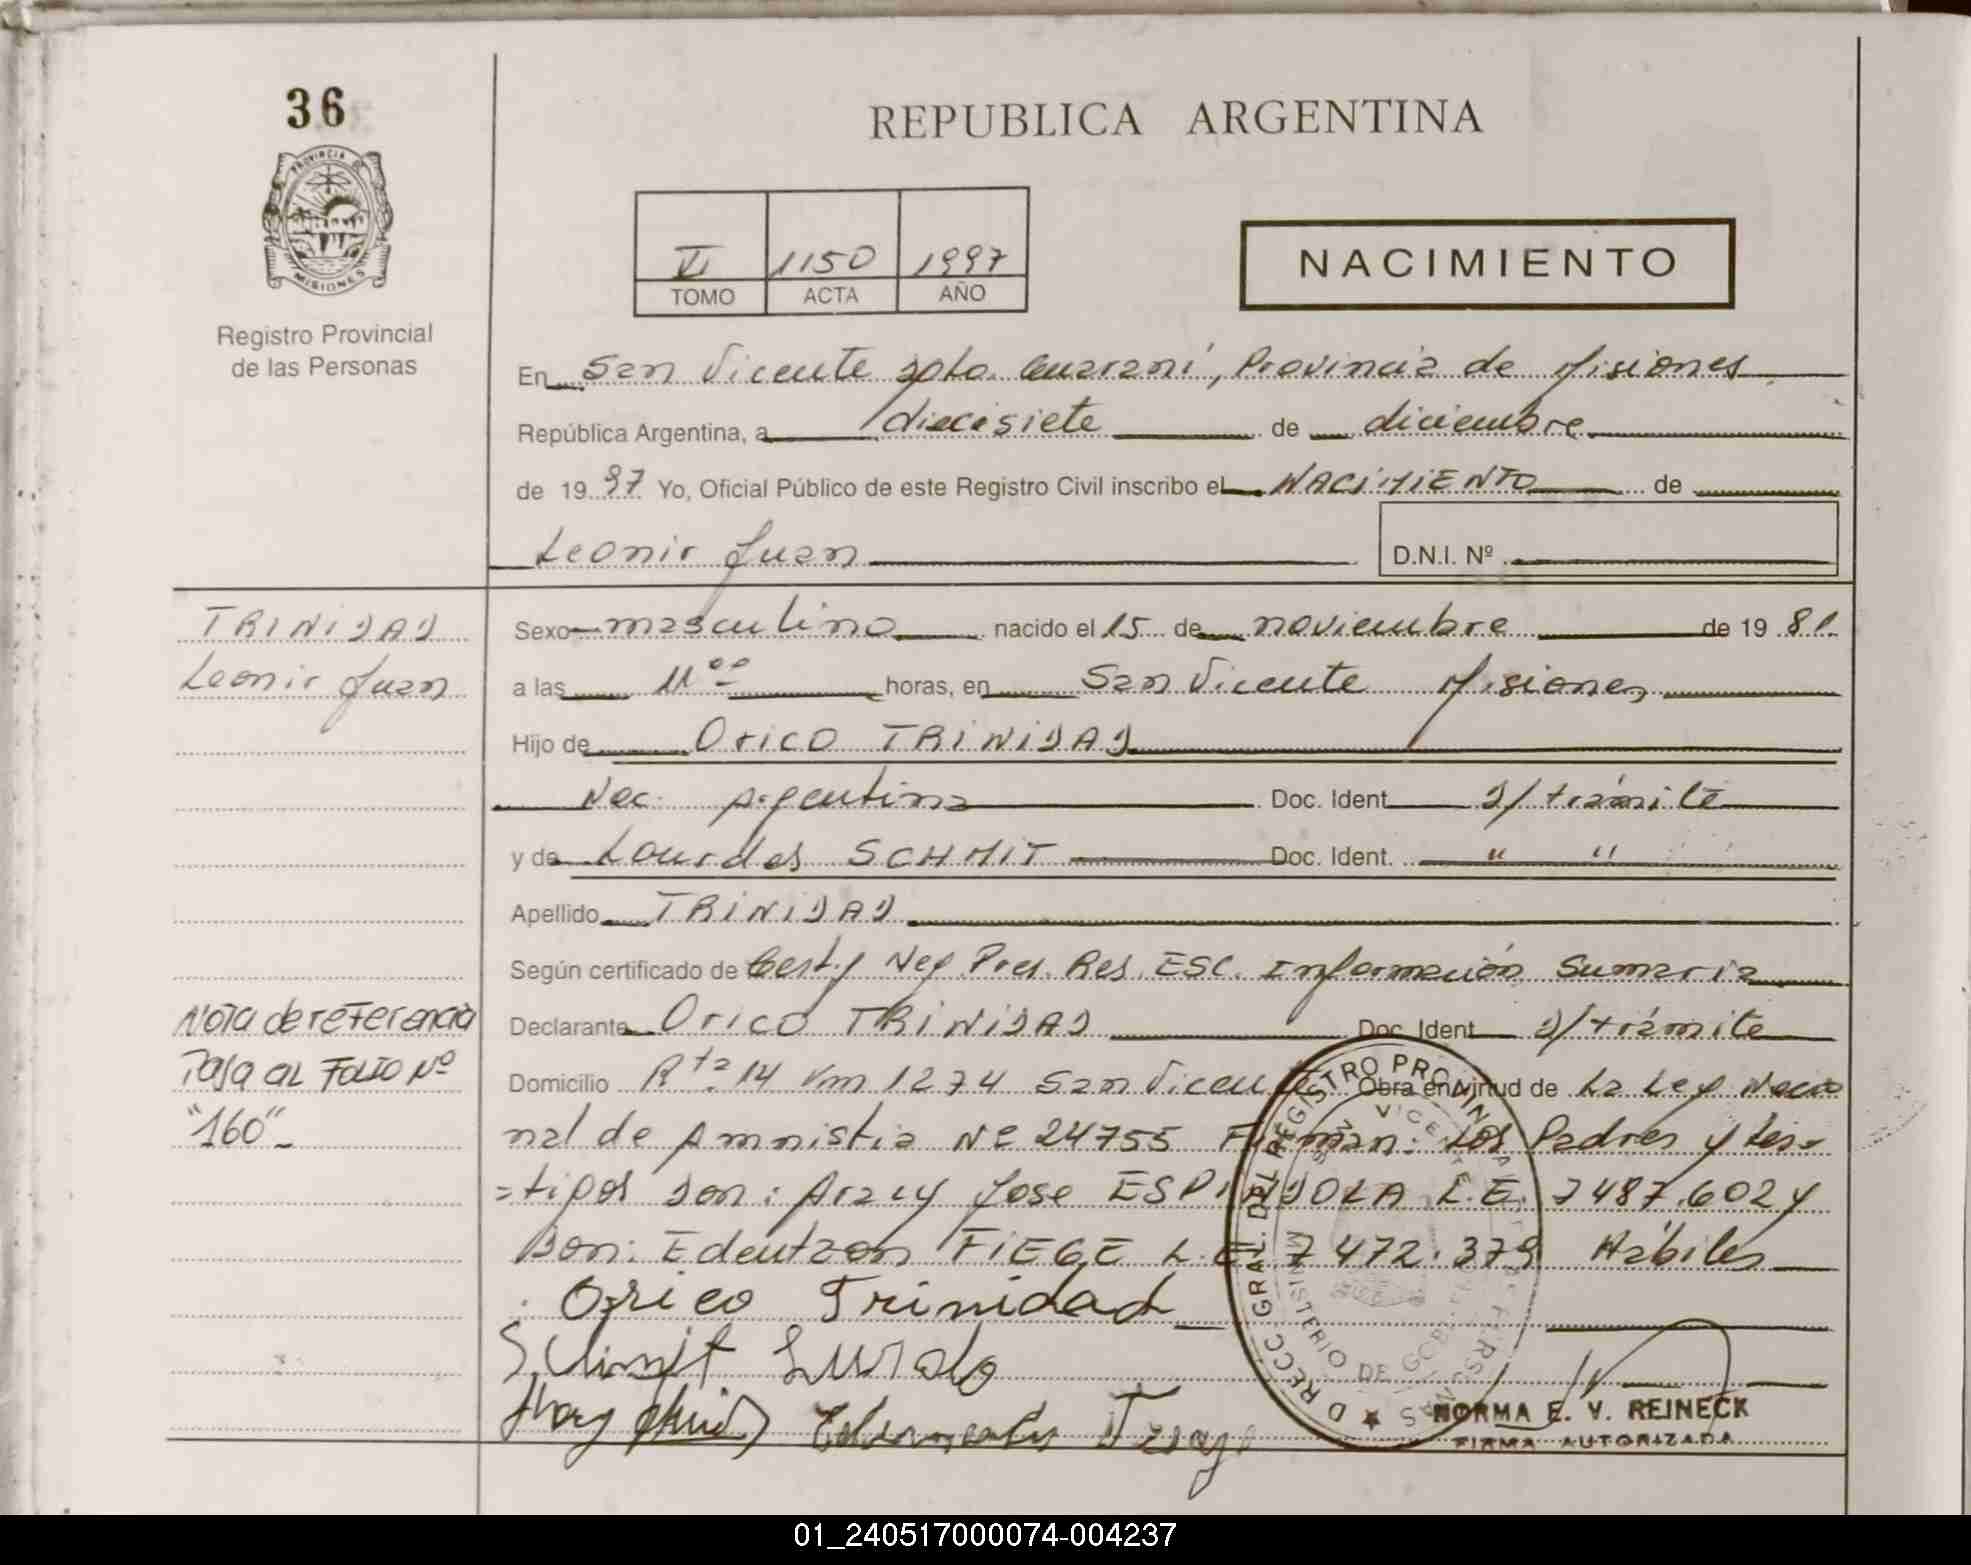 36
PROVINCIA DE
MISIONES
Registro Provincial
de las Personas
REPUBLICA ARGENTINA
VI 1150 1997
TOMO ACTA AÑO
NACIMIENTO
En San Vicente Dpto. Guaraní, Provincia de Misiones
República Argentina, a diecisiete de diciembre
de 19 97 Yo, Oficial Público de este Registro Civil inscribo el NACIMIENTO de
Leonir Juan D.N.I. Nº
TRINIDAD
Leonir Juan
Sexo masculino nacido el 15 de noviembre de 19 81
a las 11⁰⁰ horas, en San Vicente Misiones
Hijo de Orico TRINIDAD
Nac. Argentina Doc. Ident D/trámite
y de Lourdes SCHMIT Doc. Ident. " "
Apellido TRINIDAD
Según certificado de Neg. Res. ESC. Información Sumaria
Declarante Orico TRINIDAD Doc. Ident D/trámite
Domicilio Rta 14 Km 1274 San Vicente Obra en virtud de La Ley Nacio
nal de Amnistia Nº 24755 Firman: Los Padres y tes=
=tigos son: Aracy Jose ESPINDOLA L.E. 7487.602 y
Don: Edeutzon FIEGE L.E. 7472.379 Hábiles
Nota de referencia
Pasa al Folio Nº
"160"
Orico Trinidad
Schmit
DRECC. GRAL. DEL REGISTRO PROVINCIAL DE LAS PERSONAS
SAN VICENTE
MINISTERIO DE GOBIERNO
NORMA E. V. REINECK
FIRMA AUTORIZADA
01_240517000074-004237